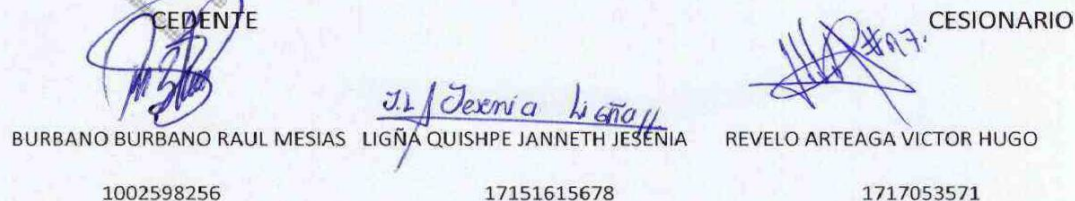 CEDENTE CESIONARIO
J.L Jesenia Ligña
BURBANO BURBANO RAUL MESIAS LIGÑA QUISHPE JANNETH JESENIA REVELO ARTEAGA VICTOR HUGO
1002598256 17151615678 1717053571